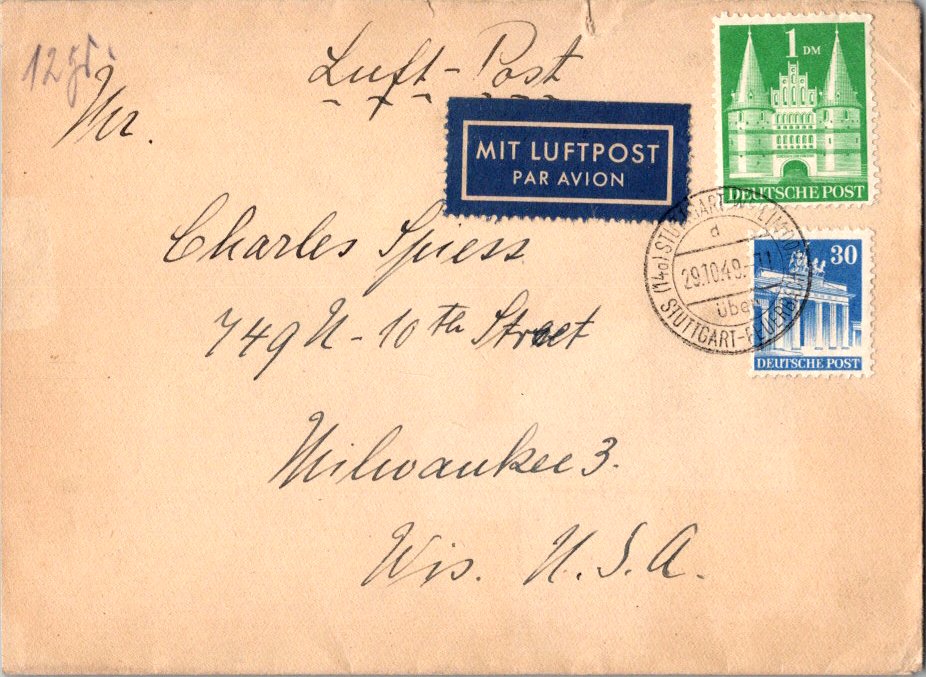 12 gr.
Luft-Post
Mr.
MIT LUFTPOST
PAR AVION
1 DM
DEUTSCHE POST
Charles Spiess
749 N - 10th Street
Milwaukee 3.
Wis. U.S.A.
(14a) STUTTGART-
d
29.10.49.
über
STUTTGART-FEUERBACH
30
DEUTSCHE POST